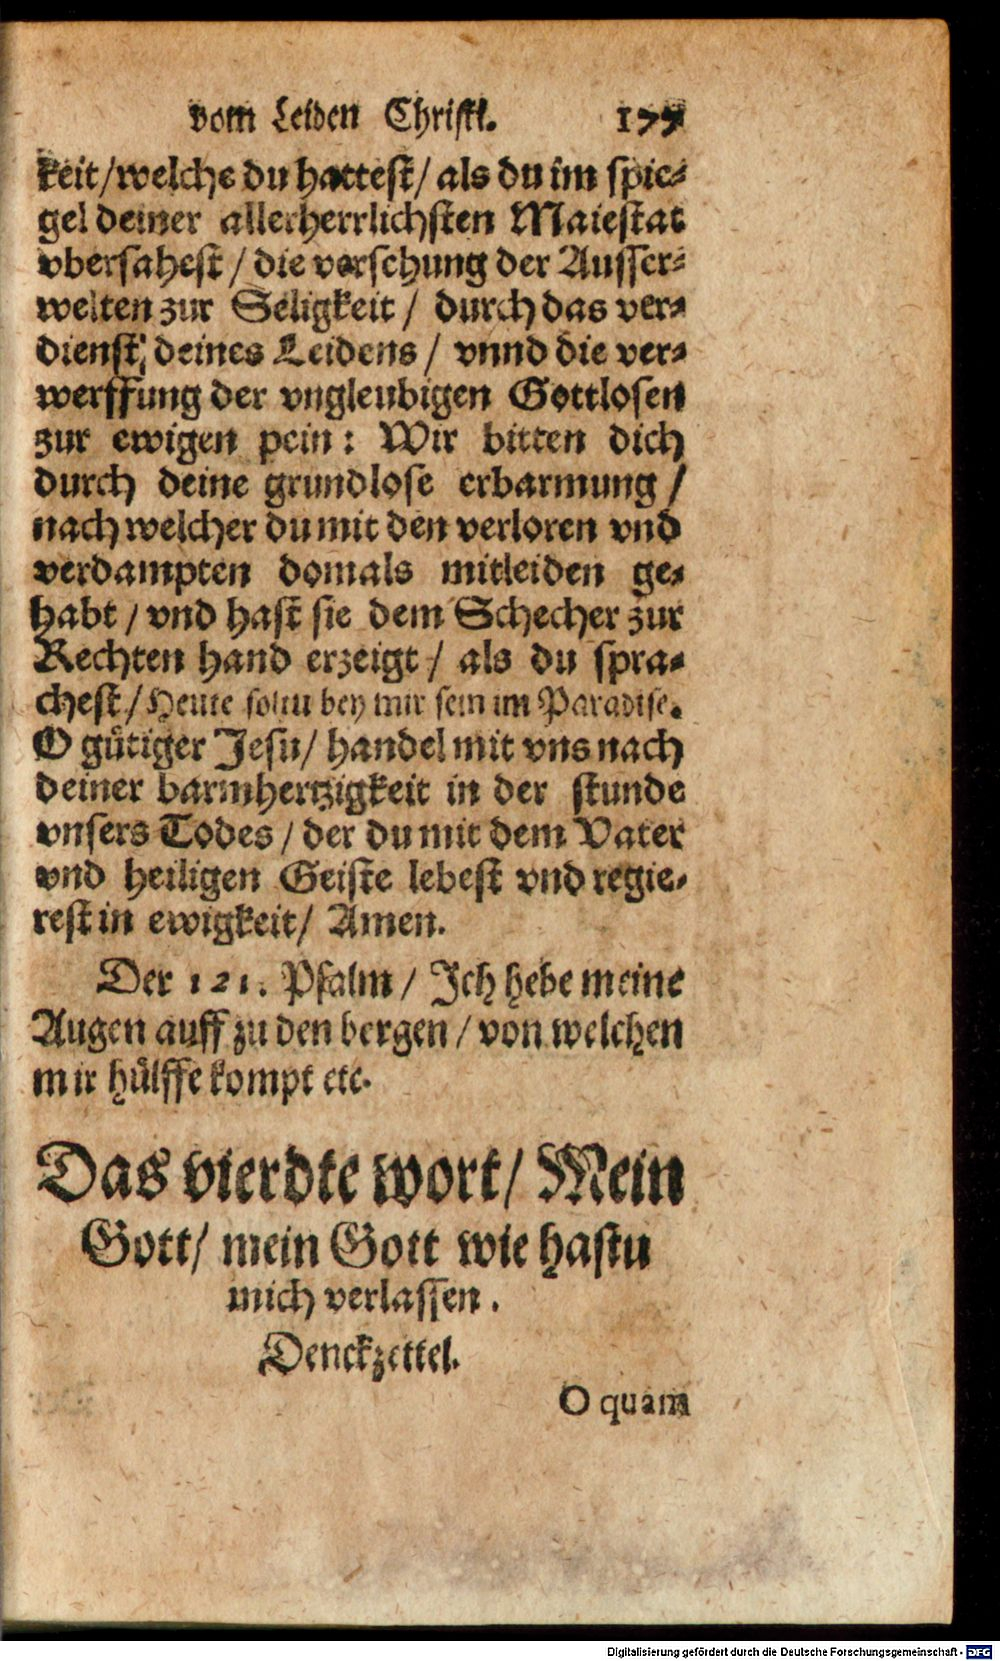 vom Leiden Christi. 177
keit/welche du hattest/ als du im spie-
gel deiner allerherrlichsten Maiestat
vbersahest / die versehung der Ausser-
welten zur Seligkeit / durch das ver-
dienst deines Leidens / vnnd die ver-
werffung der vngleubigen Gottlosen
zur ewigen pein: Wir bitten dich
durch deine grundlose erbarmung /
nach welcher du mit den verloren vnd
verdampten domals mitleiden ge-
habt / vnd hast sie dem Schecher zur
Rechten hand erzeigt / als du spra-
chest / Heute soltu bey mir sein im Paradise.
O gütiger Jesu/ handel mit vns nach
deiner barmhertzigkeit in der stunde
vnsers Todes / der du mit dem Vater
vnd heiligen Geiste lebest vnd regie-
rest in ewigkeit/ Amen.
Der 121. Psalm / Ich hebe meine
Augen auff zu den bergen / von welchen
mir hülffe kompt etc.
Das vierdte wort/ Mein
Gott/ mein Gott wie hastu
mich verlassen.
Denckzettel.
O quam
Digitalisierung gefördert durch die Deutsche Forschungsgemeinschaft - DFG